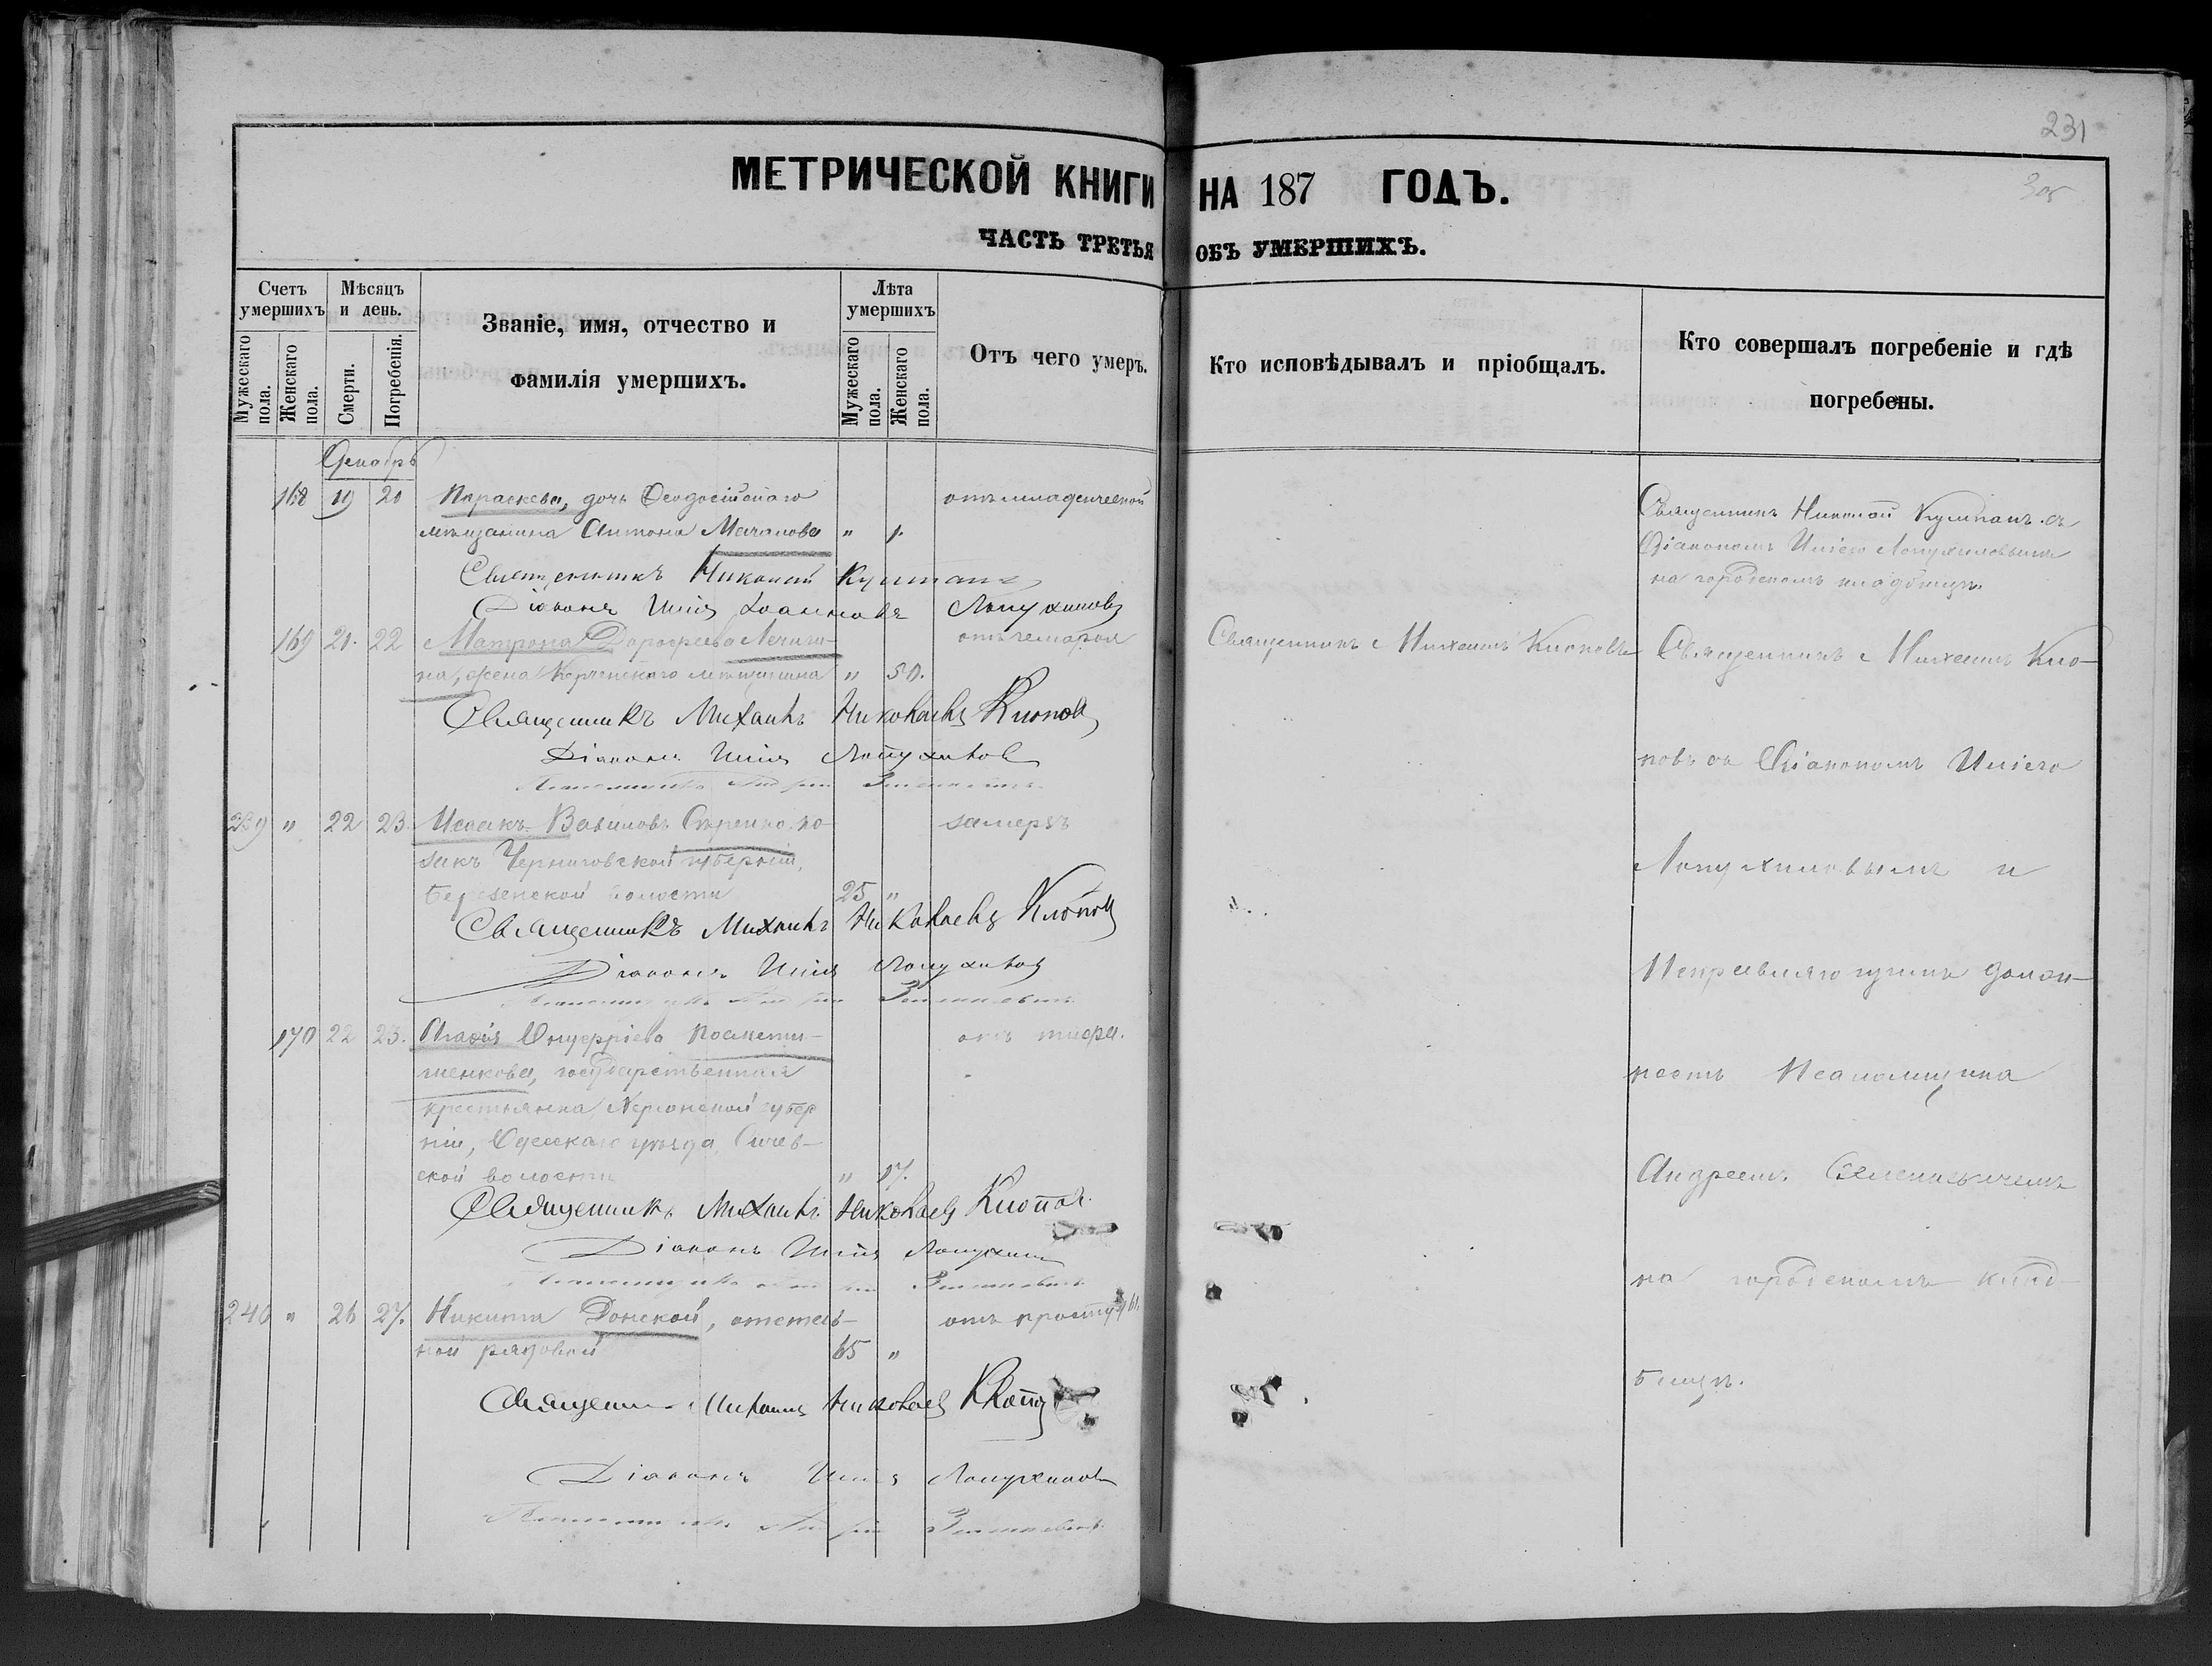 231
305
МЕТРИЧЕСКОЙ КНИГИ НА 187 ГОДЪ.
ЧАСТЬ ТРЕТЬЯ ОБЪ УМЕРШИХЪ.
Счетъ умершихъ
Мужескаго пола.
Женскаго пола.
Мѣсяцъ и день.
Смерти.
Погребенія.
Званіе, имя, отчество и
фамилія умершихъ.
Лѣта умершихъ
Мужескаго пола.
Женскаго пола.
Отъ чего умеръ.
Кто исповѣдывалъ и пріобщалъ.
Кто совершалъ погребеніе и гдѣ
погребены.
Декабрь
168 19 20 Параскева, дочь Ѳеодосійскаго отъ младенческой
мѣщанина Антона " 1.
Священникъ Николай
Діаконъ Илія Лопухиновъ
Священникъ Николай съ
Діакономъ Иліею Лопухиновымъ
на городскомъ кладбищѣ.
169 21. 22 Матрона Дорофеева
на, жена Керченскаго мѣщанина " 50.
Священникъ Михаилъ Николаевъ Клоповъ
Діаконъ Илія Лопухиновъ
Священникъ Михаилъ Клоповъ
Священникъ Михаилъ Кло-
повъ съ Діакономъ Иліею
Лопухиновымъ и
Исправляющимъ долж-
ность Псаломщика
Андреемъ
на городскомъ клад-
бищѣ.
239 " 22 23. Исаакъ Вавиловъ ко- замерзъ
закъ Черниговской губерніи,
Березенской волости 25 "
Священникъ Михаилъ Николаевъ Клоповъ
Діаконъ Илія Лопухиновъ
170 22 23. Агафія Онуфріева отъ тифа.
государственная
крестьянка Херсонской губер
ніи, Одесскаго уѣзда,
ской волости " 17.
Священникъ Михаилъ Николаевъ Клоповъ
Діаконъ Илія Лопухиновъ
240 " 26 27. Никита Донской, отстав- отъ простуды.
ной рядовой 65 "
Священникъ Михаилъ Николаевъ Клоповъ
Діаконъ Илія Лопухиновъ